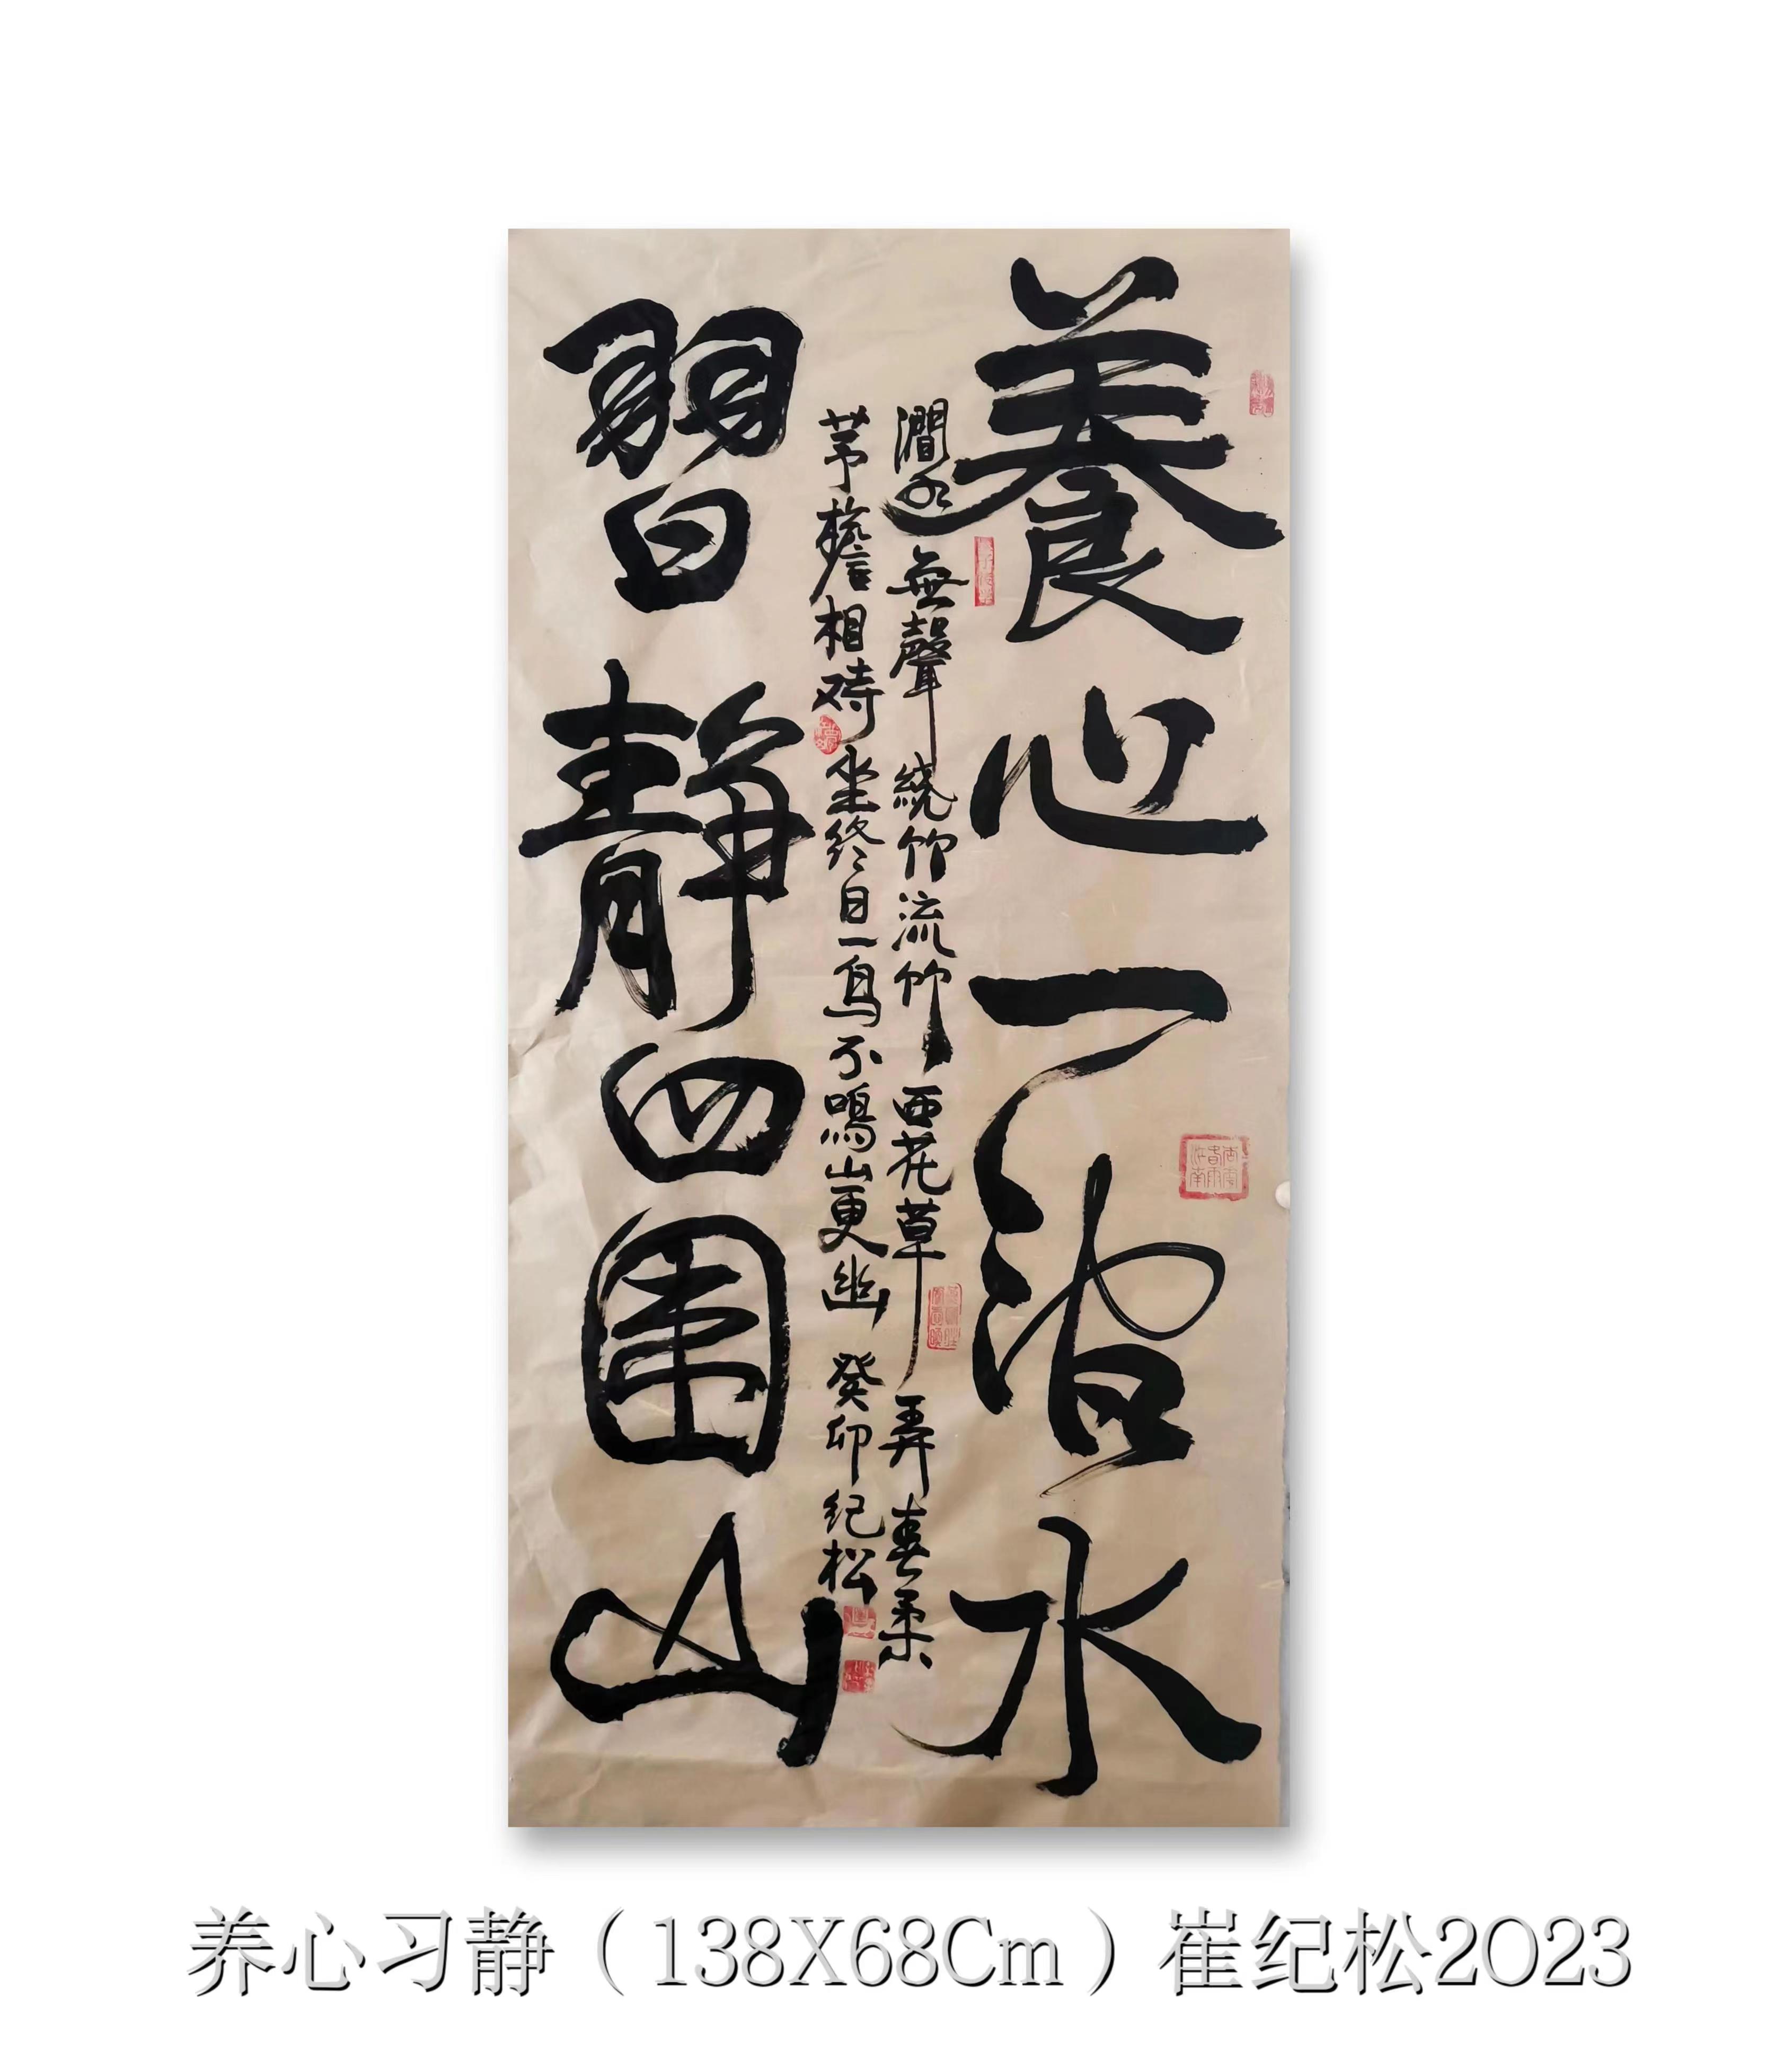 養心一沼水
澗水無聲繞竹流竹西花草弄春柔
茅檐相對坐終日一鳥不鳴山更幽 癸卯紀松
習靜四圍山
养心习静（138X68Cm）崔纪松2023